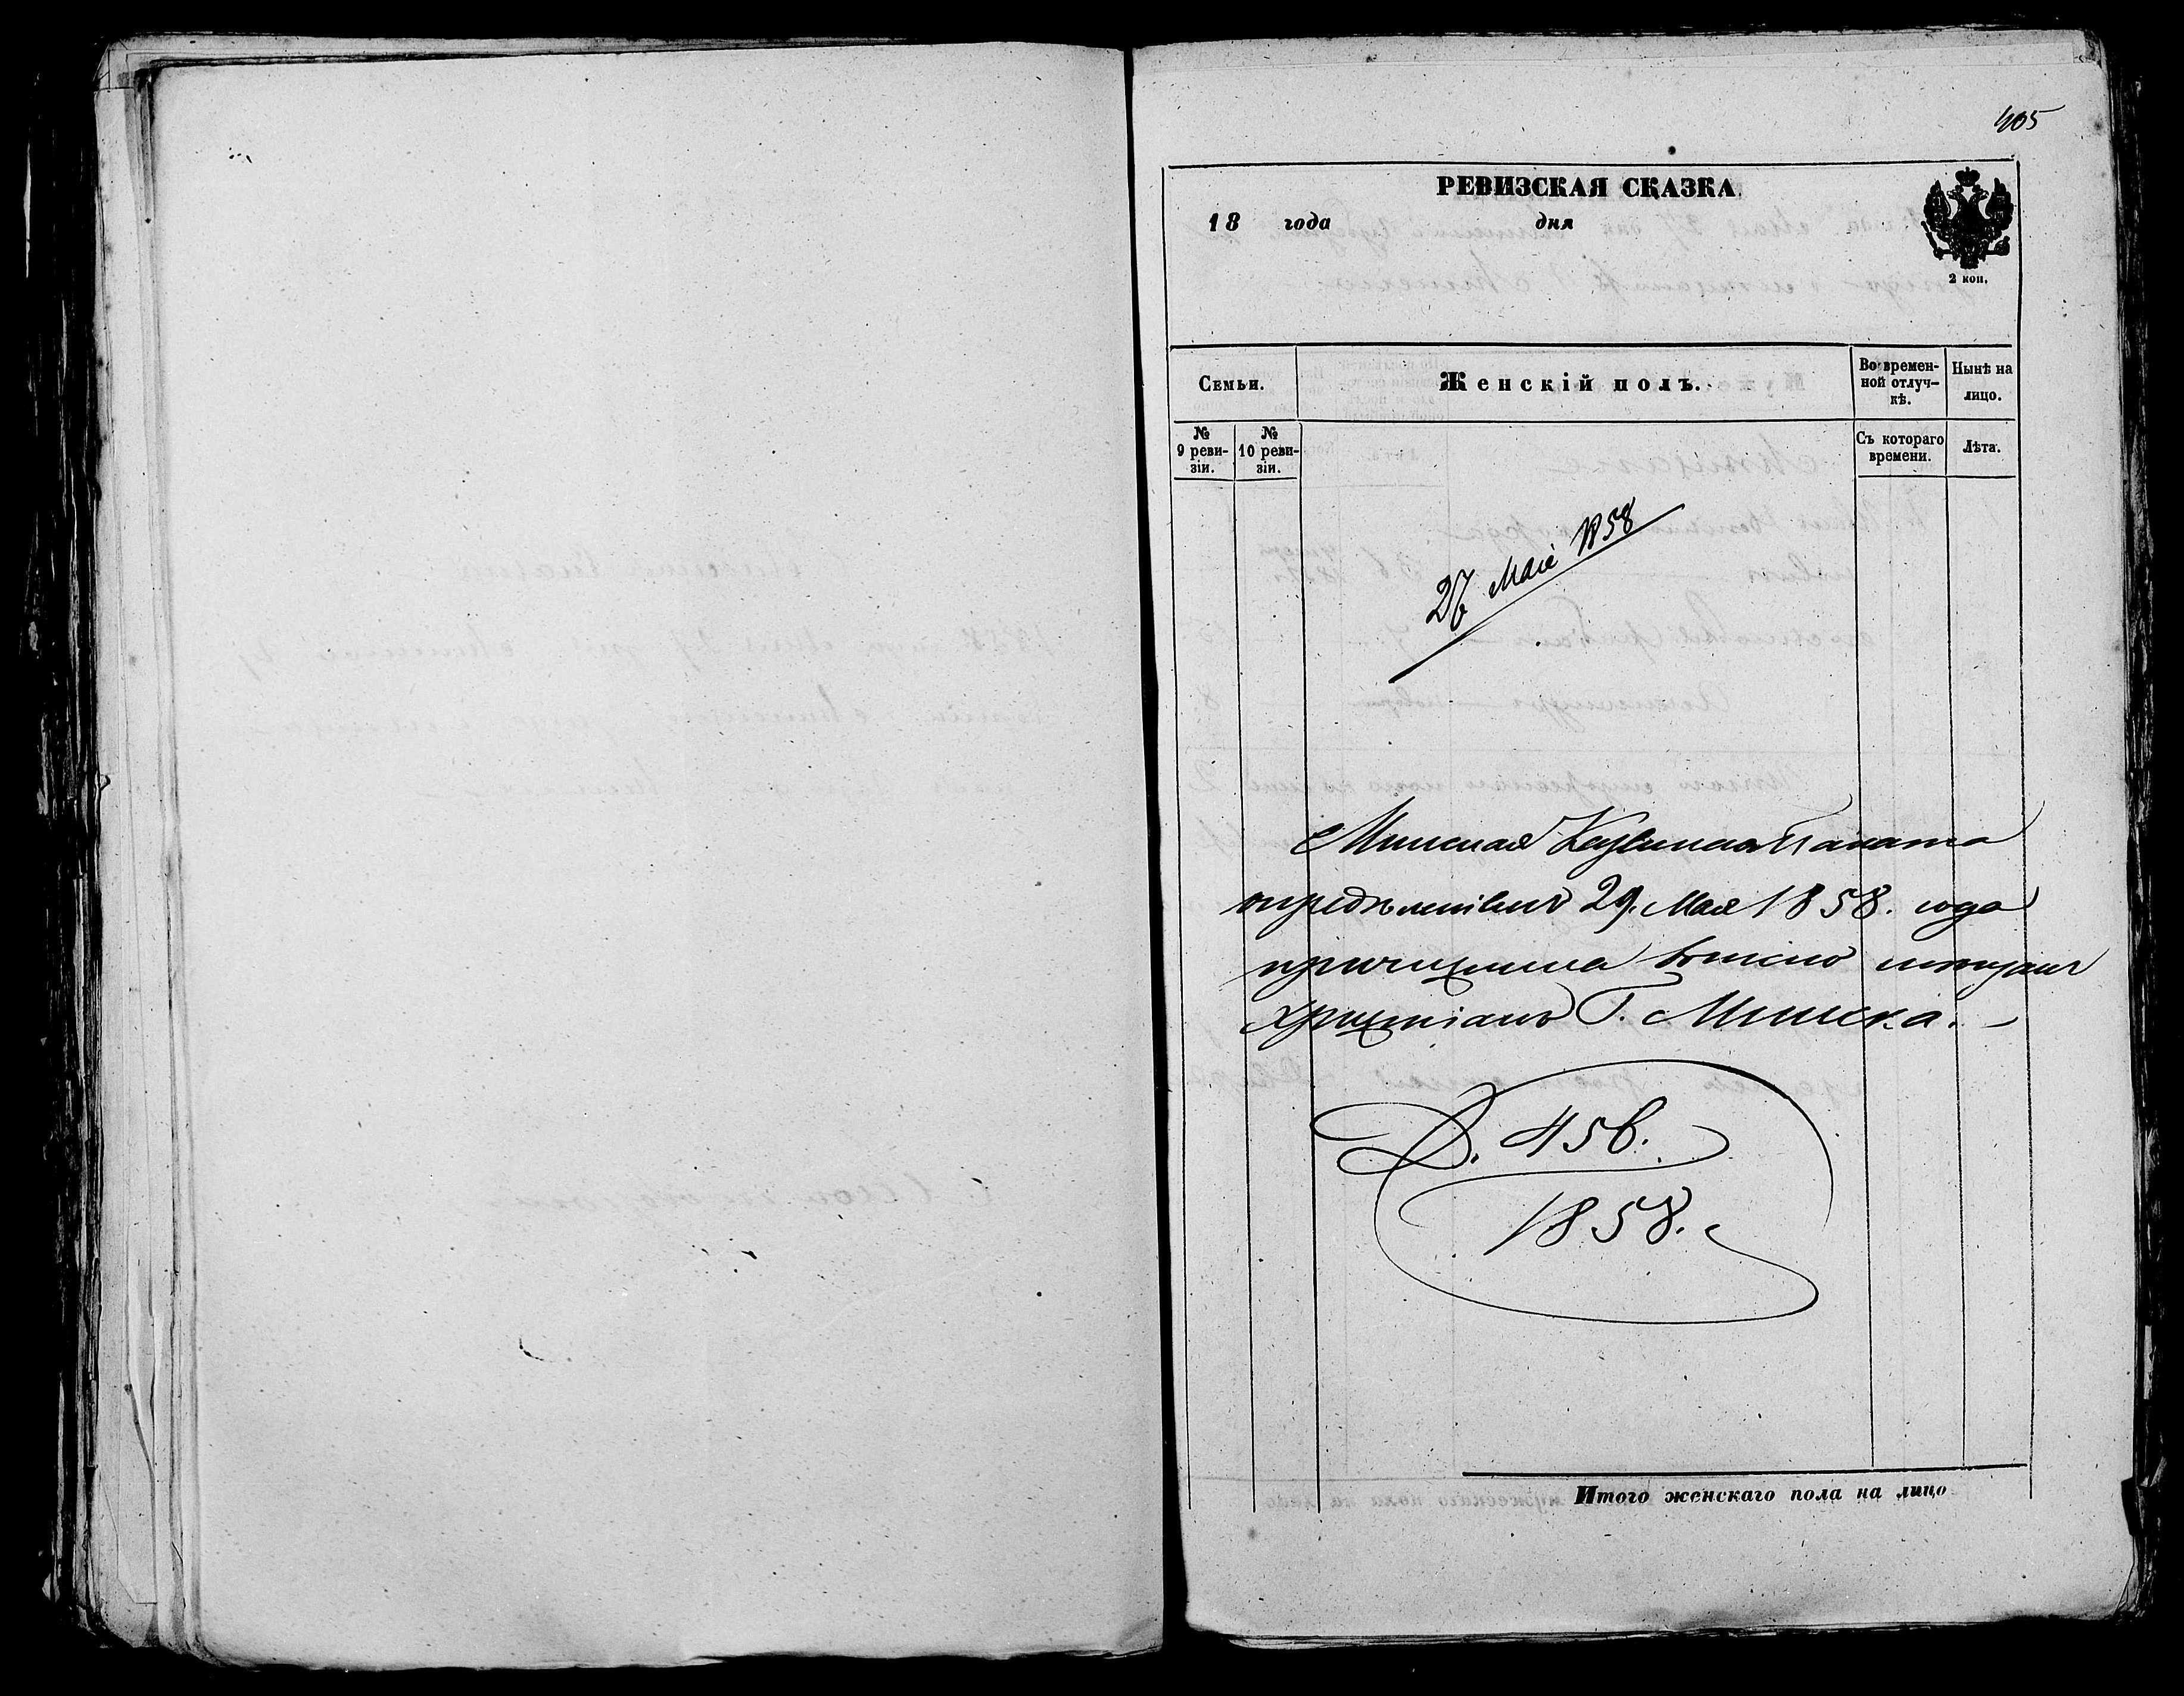 405
РЕВИЗСКАЯ СКАЗКА.
18 года дня
2 коп.
Семьи.
Женскій полъ.
Во времен-
ной отлуч-
кѣ.
Нынѣ на
лицо.
№
9 реви-
зіи.
№
10 реви-
зіи.
Съ котораго
времени.
Лѣта.
27 Маія 1858
Минская Казенная Палата
опредѣленіемъ 29. Мая 1858. года
причислила
христіанъ Г. Минска.
Д. 456.
1858.
Итого женскаго пола на лицо